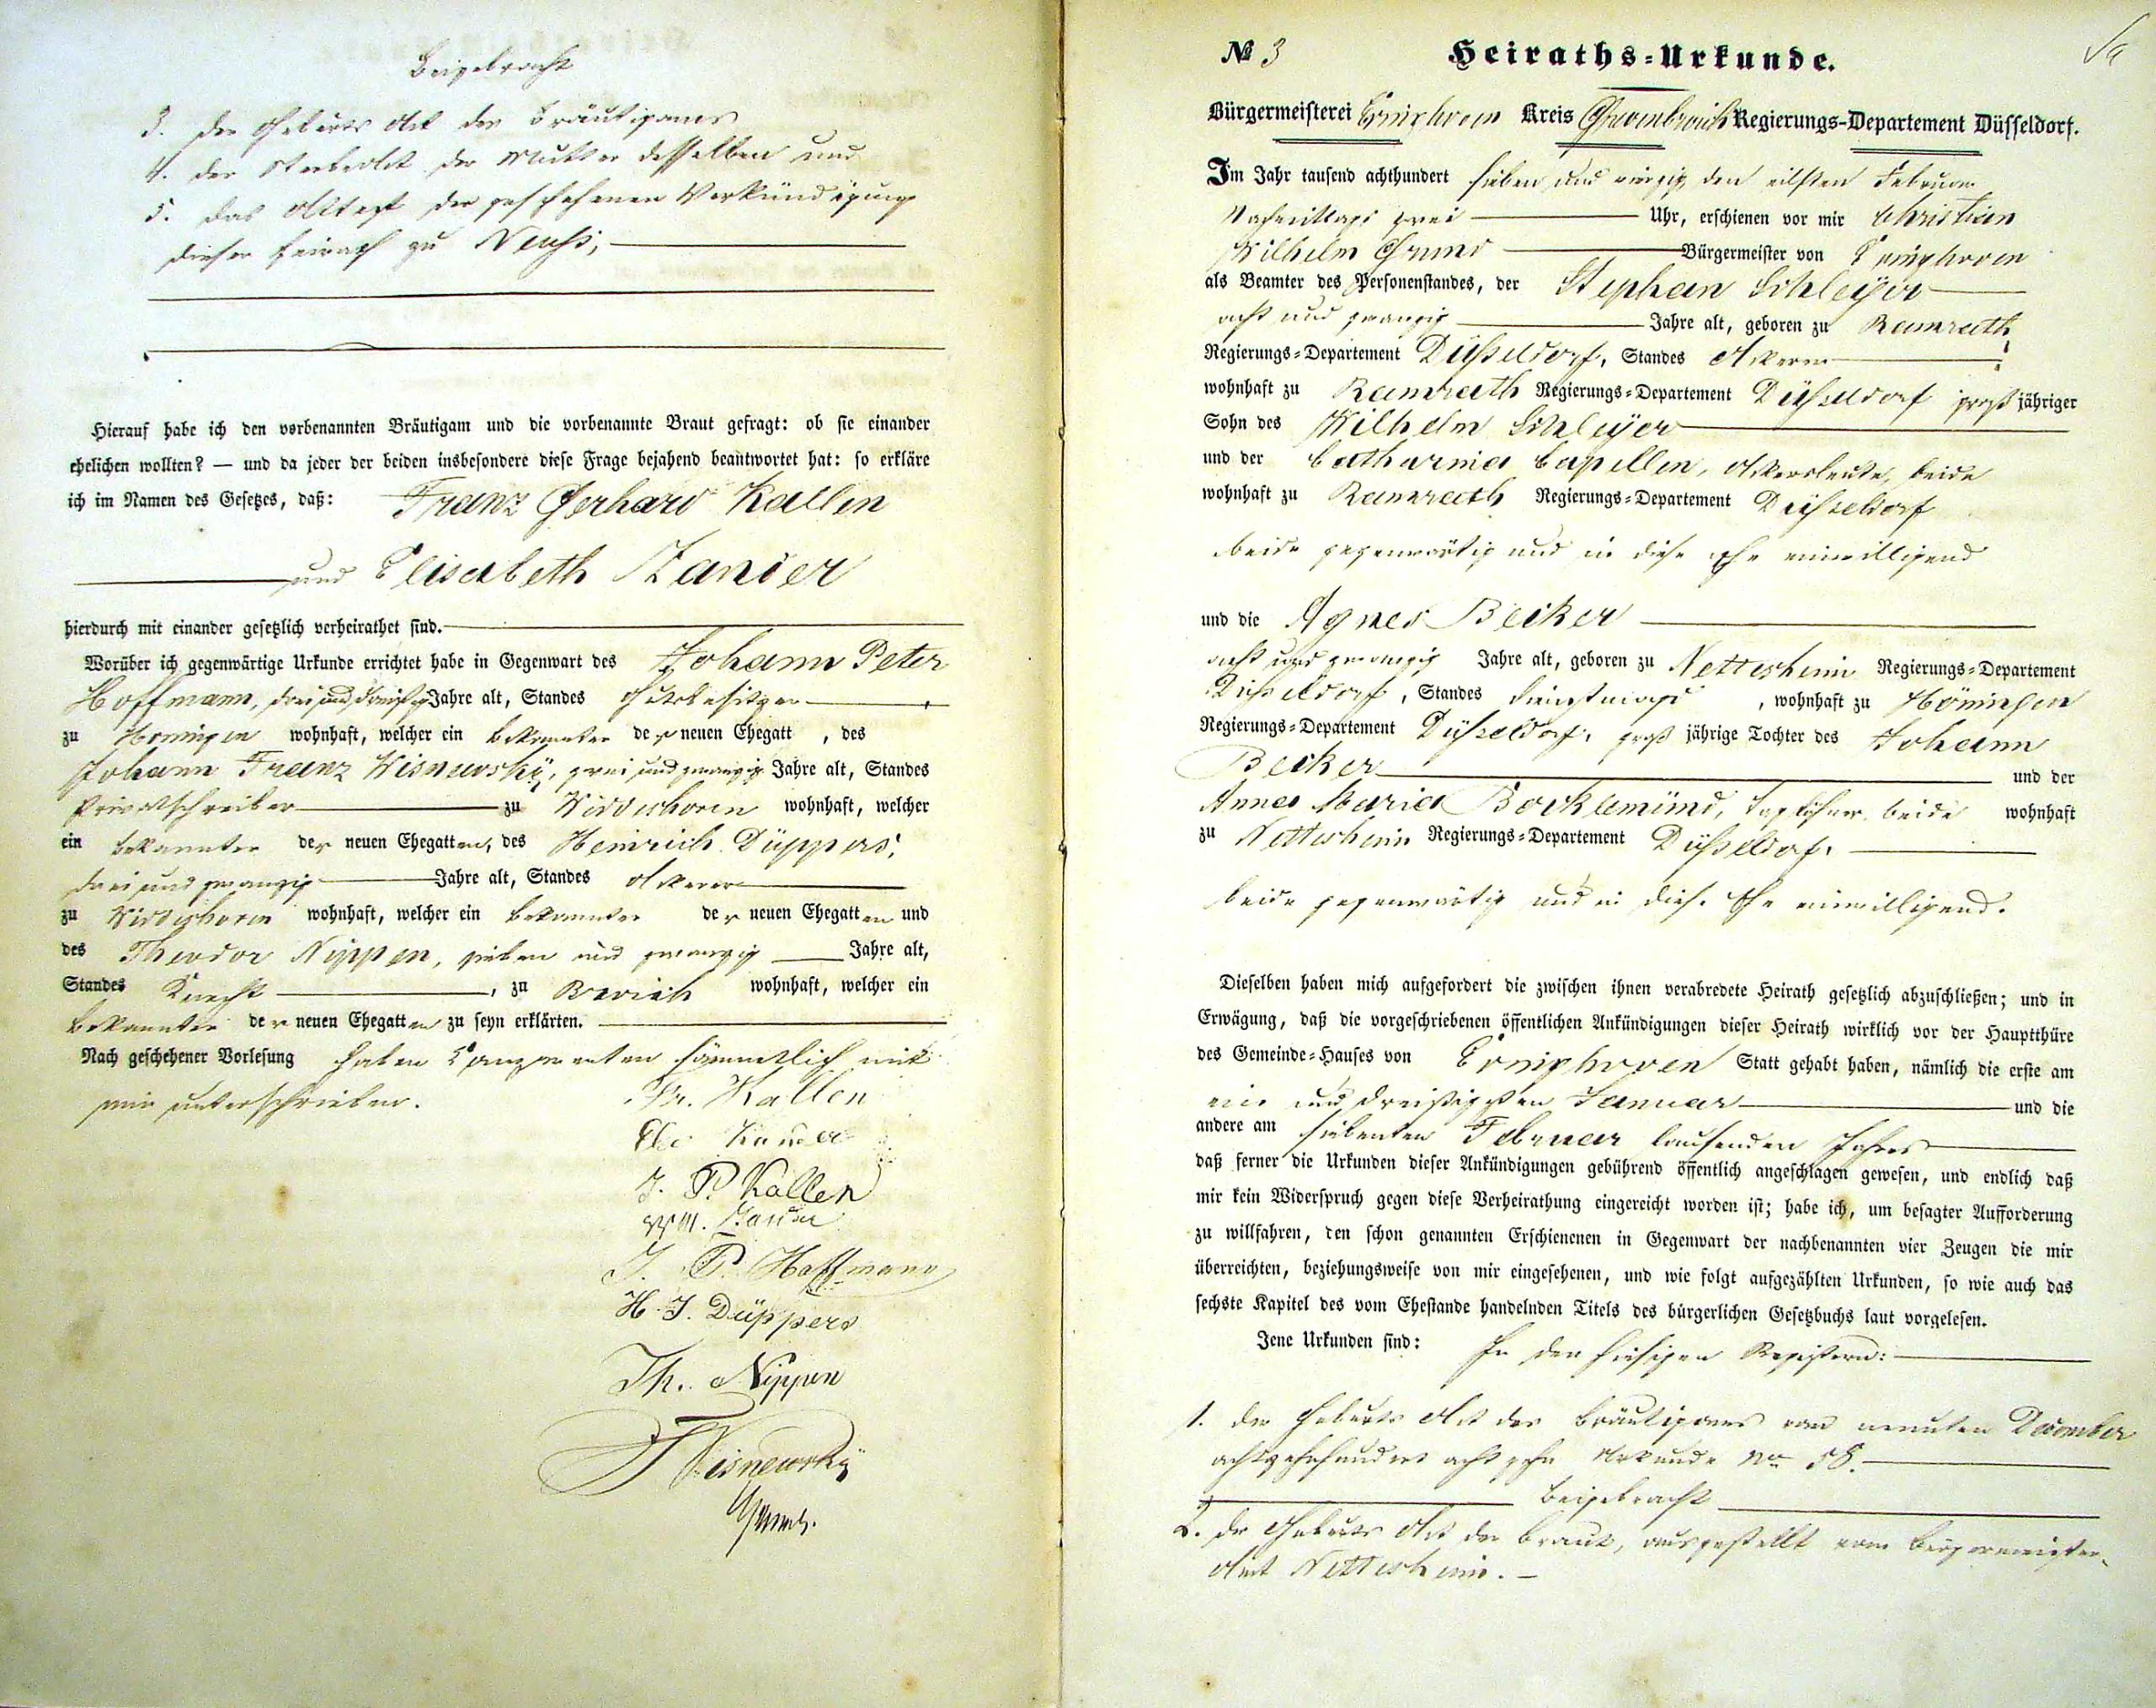 Beigebracht
3. der Geburts Akt des Bräutigams
4. der Sterbeakt der Mutter desselben und
5. das Attest der geschehenen Verkündigung
dieser Heirath zu Neuss,
Hierauf habe ich den vorbenannten Bräutigam und die vorbenannte Braut gefragt: ob sie einander
ehelichen wollten? — und da jeder der beiden insbesondere diese Frage bejahend beantwortet hat: so erkläre
ich im Namen des Gesetzes, daß: Franz Gerhard Kallen
und Elisabeth Zander
hierdurch mit einander gesetzlich verheirathet sind.
Worüber ich gegenwärtige Urkunde errichtet habe in Gegenwart des Johann Peter
Hoffmann, drei und dreißig Jahre alt, Standes Gutsbesitzer
zu Hoeningen wohnhaft, welcher ein bekannter der neuen Ehegatt, des
Johann Franz Wisnewsky, zwei und zwanzig Jahre alt, Standes
Privatschreiber zu Widdeshoven wohnhaft, welcher
ein bekannter der neuen Ehegatten, des Heinrich Düppers,
drei und zwanzig Jahre alt, Standes Ackerer
zu Widdeshoven wohnhaft, welcher ein bekannter der neuen Ehegatten und
des Theodor Nippen, sieben und zwanzig Jahre alt,
Standes Knecht, zu wohnhaft, welcher ein
bekannter der neuen Ehegatten zu seyn erklärten.
Nach geschehener Vorlesung haben Comparenten sämmtlich mit
mir unterschrieben.
Fr. Kallen
Zander
J. P. Kallen
Zander
J. P. Hoffmann
H. J. Düppers
Th. Nippen
Wisnewsky
№ 3 Heiraths-Urkunde.
Bürgermeisterei Evinghoven Kreis Grevenbroich Regierungs-Departement Düsseldorf.
Im Jahr tausend achthundert sieben und vierzig, den eilften Februar
Nachmittags zwei Uhr, erschienen vor mir Christian
Wilhelm Grund Bürgermeister von Evinghoven
als Beamter des Personenstandes, der Stephan Schleyer
acht und zwanzig Jahre alt, geboren zu Ramrath,
Regierungs-Departement Düsseldorf, Standes Ackerer
wohnhaft zu Ramrath Regierungs-Departement Düsseldorf großjähriger
Sohn des Wilhelm Schleyer
und der Catharina Capellen, Ackersleute, beide
wohnhaft zu Ramrath Regierungs-Departement Düsseldorf
beide gegenwärtig und in diese Ehe einwilligend
und die Agnes Becker
acht und zwanzig Jahre alt, geboren zu Nettesheim Regierungs-Departement
Düsseldorf, Standes Dienstmagd, wohnhaft zu Höningen
Regierungs-Departement Düsseldorf, groß jährige Tochter des Johann
Becker und der
Anna Maria Bocklemünd, Taglöhner, beide wohnhaft
zu Nettesheim Regierungs-Departement Düsseldorf.
beide gegenwärtig und in diese Ehe einwilligend.
Dieselben haben mich aufgefordert die zwischen ihnen verabredete Heirath gesetzlich abzuschließen; und in
Erwägung, daß die vorgeschriebenen öffentlichen Ankündigungen dieser Heirath wirklich vor der Hauptthüre
des Gemeinde-Hauses von Evinghoven Statt gehabt haben, nämlich die erste am
ein und dreißigsten Januar und die
andere am siebenten Februar laufenden Jahres
daß ferner die Urkunden dieser Ankündigungen gebührend öffentlich angeschlagen gewesen, und endlich daß
mir kein Widerspruch gegen diese Verheirathung eingereicht worden ist; habe ich, um besagter Aufforderung
zu willfahren, den schon genannten Erschienenen in Gegenwart der nachbenannten vier Zeugen die mir
überreichten, beziehungsweise von mir eingesehenen, und wie folgt aufgezählten Urkunden, so wie auch das
sechste Kapitel des vom Ehestande handelnden Titels des bürgerlichen Gesetzbuchs laut vorgelesen.
Jene Urkunden sind: In den hiesigen Registern:
1. der Geburts Akt des Bräutigams vom neunten December
achtzehnhundert acht zehn Urkunde No 58.
Beigebracht
2. der Geburts Akt der Braut, ausgestellt vom Bürgermeister-
Amt Nettesheim.